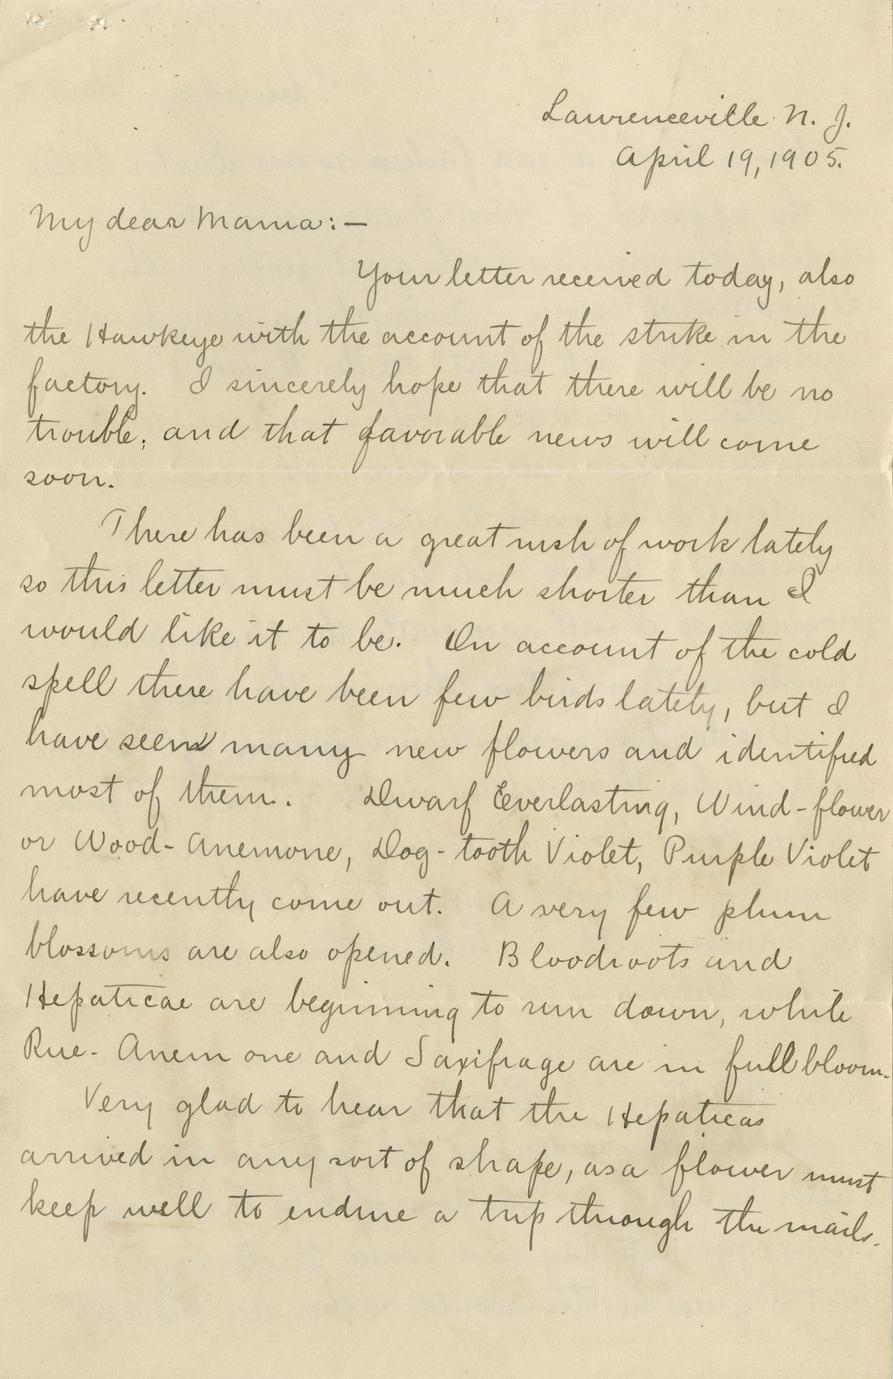 Lawrenceville N. J.
April 19, 1905.
My dear Mama:—
Your letter received today, also
the Hawkeye with the account of the strike in the
factory. I sincerely hope that there will be no
trouble, and that favorable news will come
soon.
There has been a great rush of work lately
so this letter must be much shorter than I
would like it to be. On account of the cold
spell there have been few birds lately, but I
have seen many new flowers and identified
most of them. Dwarf Everlasting, Wind-flower
or Wood-Anemone, Dog-tooth Violet, Purple Violet
have recently come out. A very few plum
blossoms are also opened. Bloodroots and
Hepaticae are beginning to run down, while
Rue-Anemone and Saxifrage are in full bloom.
Very glad to hear that the Hepaticas
arrived in any sort of shape, as a flower must
keep well to endure a trip through the mails.